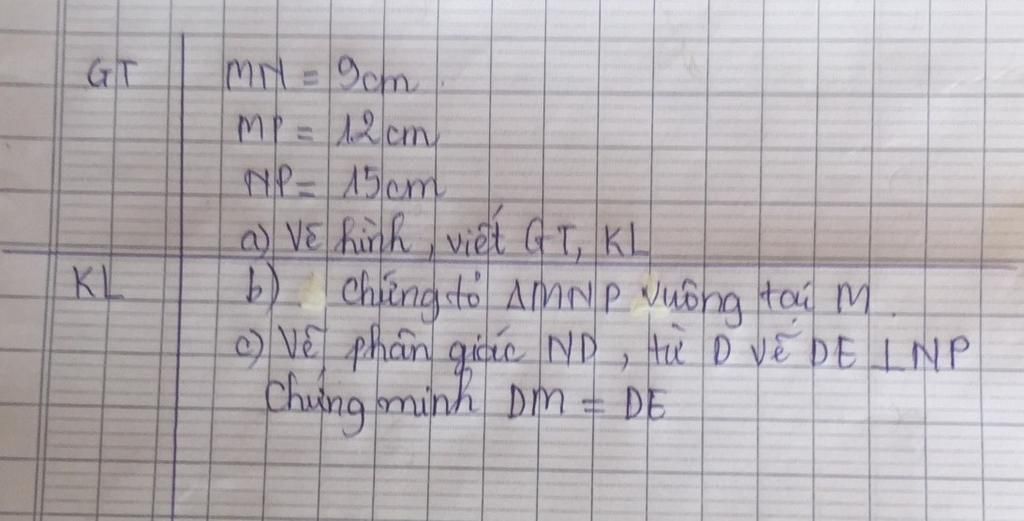 GT MN = 9cm.
MP = 12cm
NP = 15cm
a) Vẽ hình, viết GT, KL
KL b) Chứng tỏ ΔMNP vuông tại M.
c) Vẽ phân giác ND, từ D vẽ DE ⊥ NP
Chứng minh DM = DE